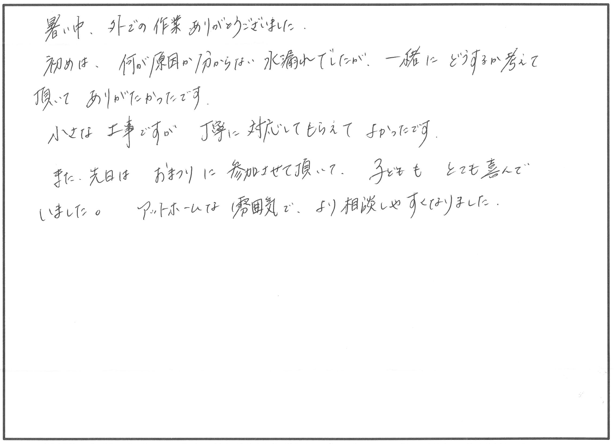 暑い中、外での作業ありがとうございました.
初めは、何が原因か分からない水漏れでしたが、一緒にどうするか考えて
頂いてありがたかったです.
小さな工事ですが丁寧に対応してもらえてよかったです.
また、先日はおまつりに参加させて頂いて、子どももとても喜んで
いました。アットホームな雰囲気で、より相談しやすくなりました.